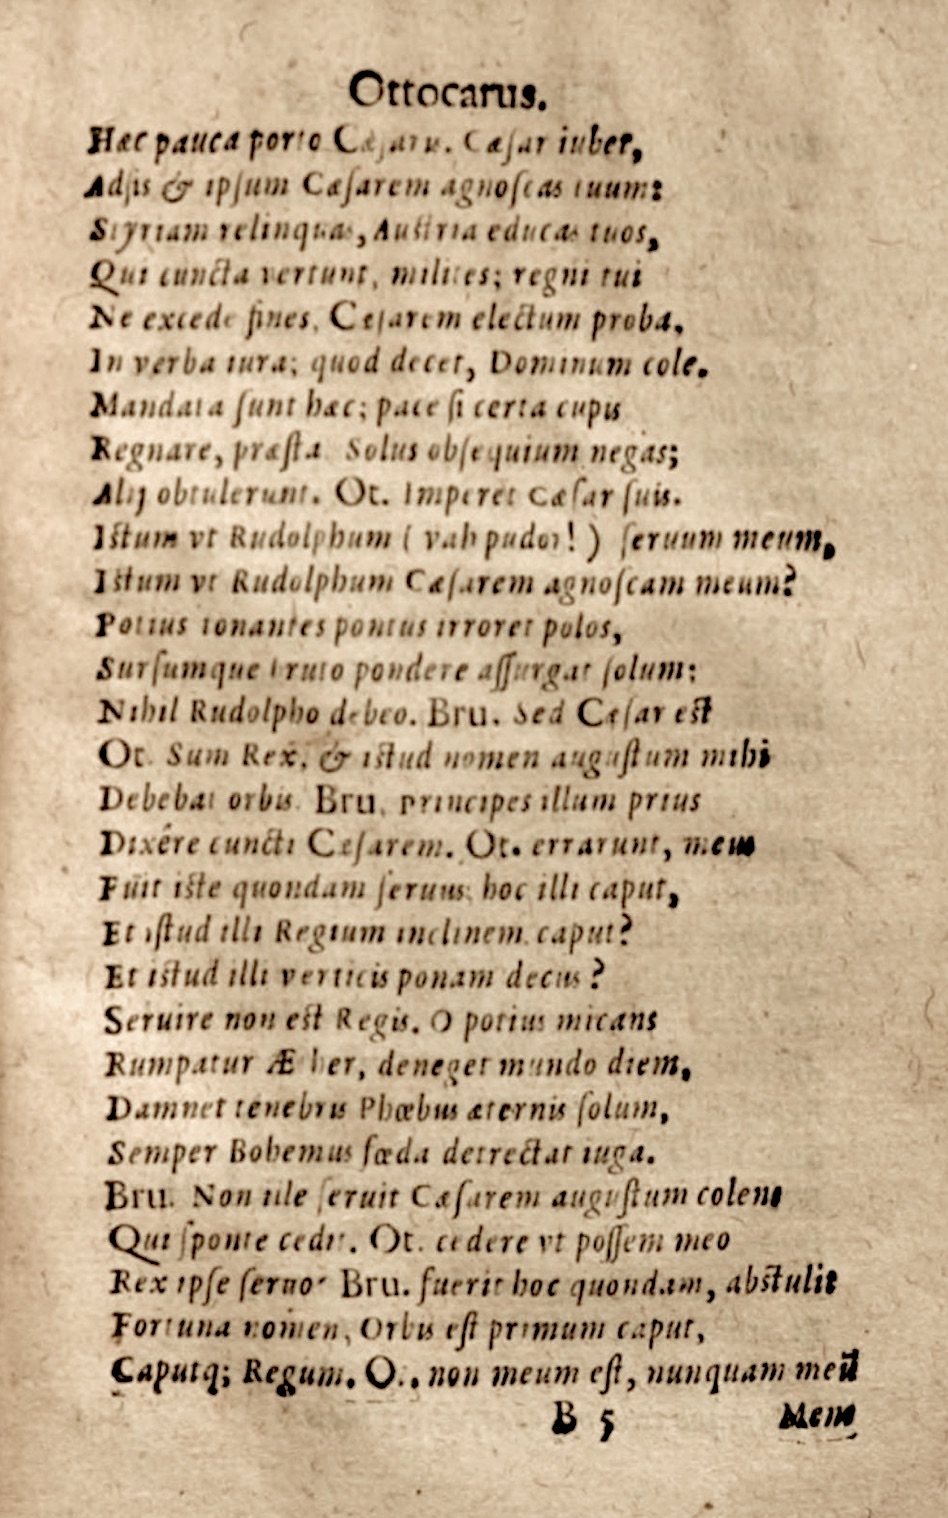 Ottocarus.
Hæc pauca porto Cæsaris. Cæsar iubet,
Adsis & ipsum Cæsarem agnoscas tuum:
Styriam relinquas, Austria educas tuos,
Qui cuncta vertunt, milites; regni tui
Ne excede fines. Cesarem electum proba.
In verba iura; quod decet, Dominum cole.
Mandata sunt hæc; pace si certa cupis
Regnare, præsta Solus obsequium negas;
Alij obtulerunt. Ot. Imperet Cæsar suis.
Istum vt Rudolphum ( vah pudor! ) seruum meum,
Istum vt Rudolphum Cæsarem agnoscam meum?
Potius tonantes pontus irroret polos,
Sursumque bruto pondere assurgat solum:
Nihil Rudolpho debeo. Bru. Sed Cesar est
Ot. Sum Rex, & istud nomen augustum mihi
Debebat orbis Bru. principes illum prius
Dixêre cuncti Cesarem. Ot. errarunt, meus
Fuit iste quondam seruus hoc illi caput,
Et istud illi Regium inclinem caput?
Et istud illi verticis ponam decus?
Seruire non est Regis. O potius micans
Rumpatur Æther, deneget mundo diem,
Damnet tenebris Phœbus æternis solum,
Semper Bohemus fœda detrectat iuga.
Bru. Non ille seruit Cæsarem augustum colens
Qui sponte cedit. Ot. cedere vt possem meo
Rex ipse seruo? Bru. fuerit hoc quondam, abstulit
Fortuna nomen, Orbis est primum caput,
Caputq; Regum. Ot. non meum est, nunquam meū
B 5 Meus